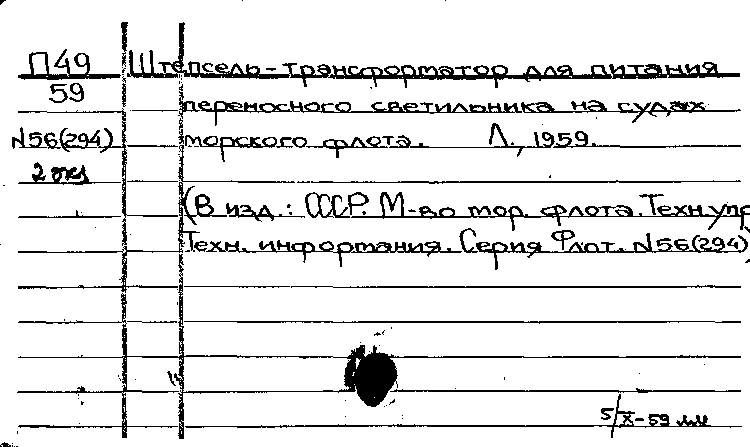 П49
59
N56(294)
2 экз
Штепсель-трансформатор для питания
переносного светильника на судах
морского флота. Л., 1959.
(В изд.: СССР. М-во мор. флота. Техн. упр
Техн. информания. Серия Флот. N56(294)
5/X-59